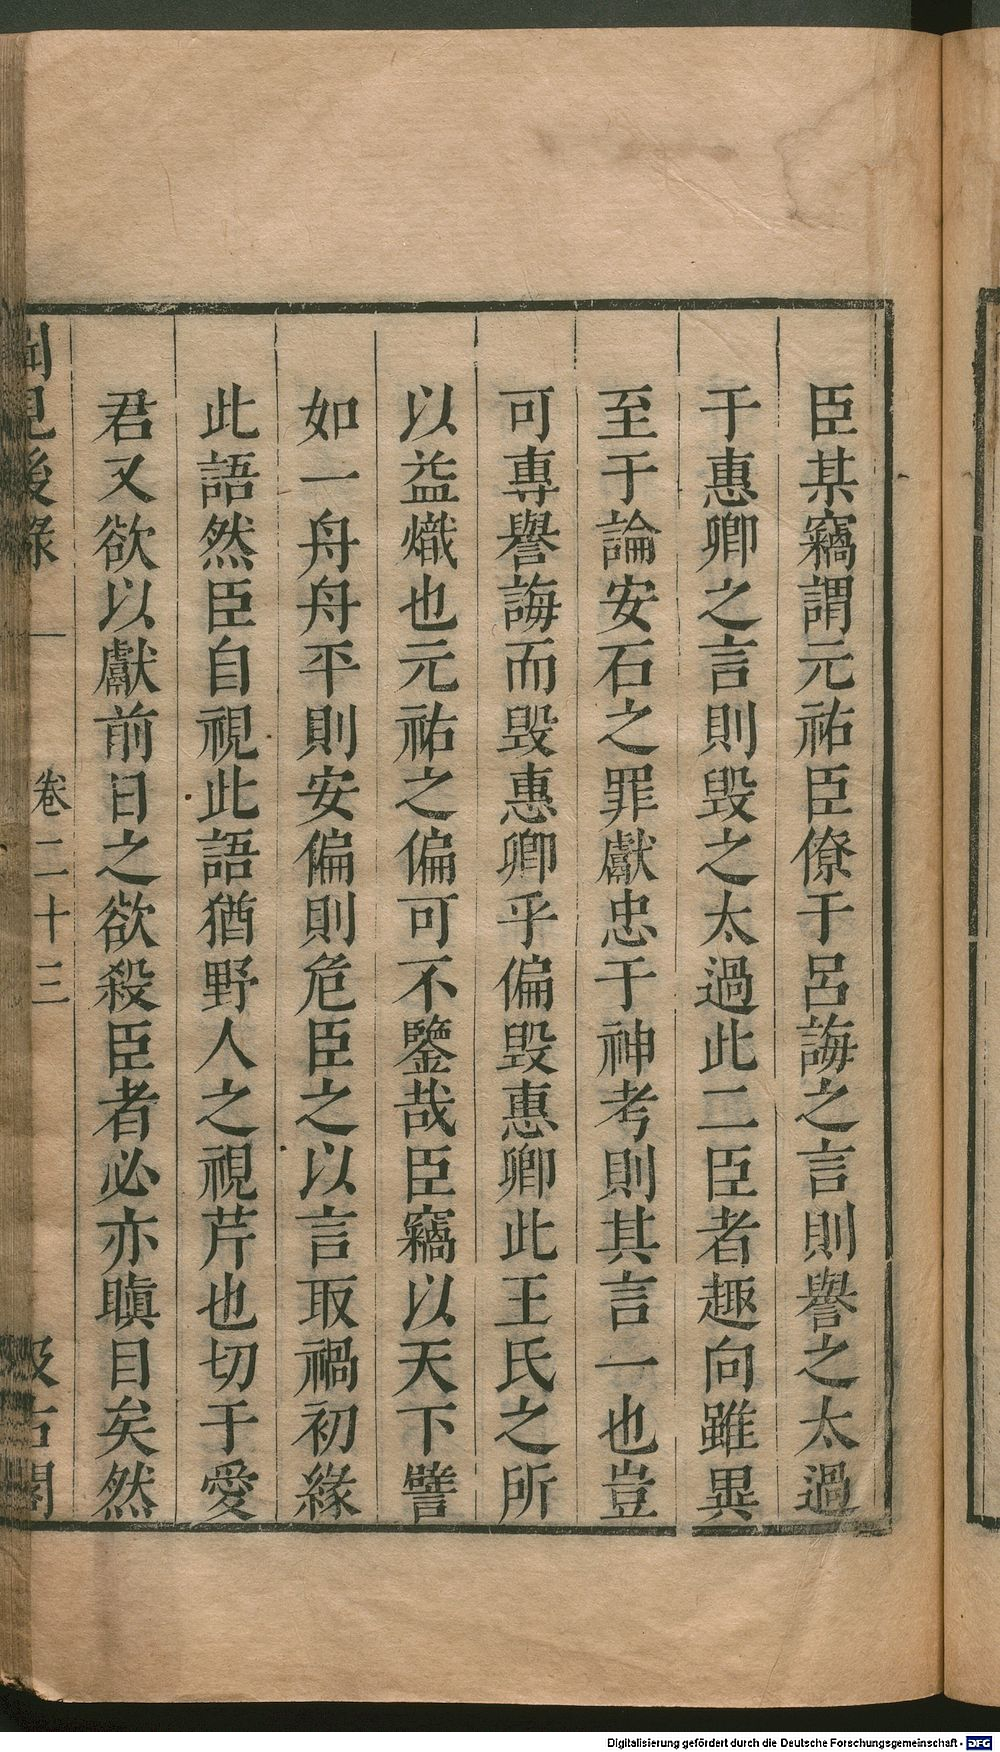 臣某竊謂元祐臣僚于呂誨之言則譽之太過
于惠卿之言則毀之太過此二臣者趣向雖異
至于論安石之罪獻忠于神考則其言一也豈
可專譽誨而毀惠卿乎偏毀惠卿此王氏之所
以益熾也元祐之偏可不鑒哉臣竊以天下譬
如一舟舟平則安偏則危臣之以言取禍初緣
此語然臣自視此語猶野人之視芹也切于愛
君又欲以獻前日之欲殺臣者必亦瞋目矣然
聞見後錄 卷二十三 汲古閣
Digitalisierung gefördert durch die Deutsche Forschungsgemeinschaft - DFG